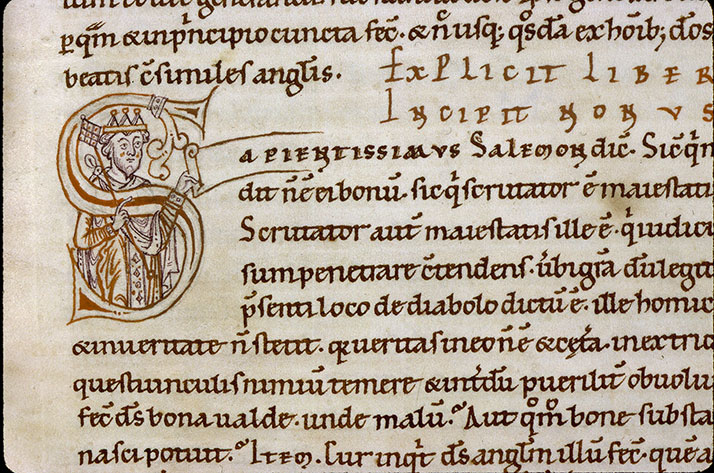 ꝑqm̄ & inpⁱncipio cuncta fec̄. & n̄usq; qͦsdā ex hōib; dōs
beatis c̄similes angłis.
Explicit liber
Incipit nonus
Sapientissimus Salemon dic̄. Sic q̄m
dit n̄ē ei bonū. sic qⁱ scrutator ē maiestati
Scrutator aut̄ maiestatis ille ē. qⁱ iudica
sum penetrare c̄tendens. ubi gr̄a dū legit
p̄senti loco de diabolo dictū ē. ille homic
& in ueritate n̄ stetit. qͥ ueritas in eo n̄ē & cęt̄a. in extric
questiunculis nimiū temere & int̄dū puerilit̄ obuolu
fec̄ dṡ bona ualde. unde malū. Aut qͦmͦ bone substa
nasci potuit. Item. Cur inqⁱt d̄s angłm illū fec̄. quē a